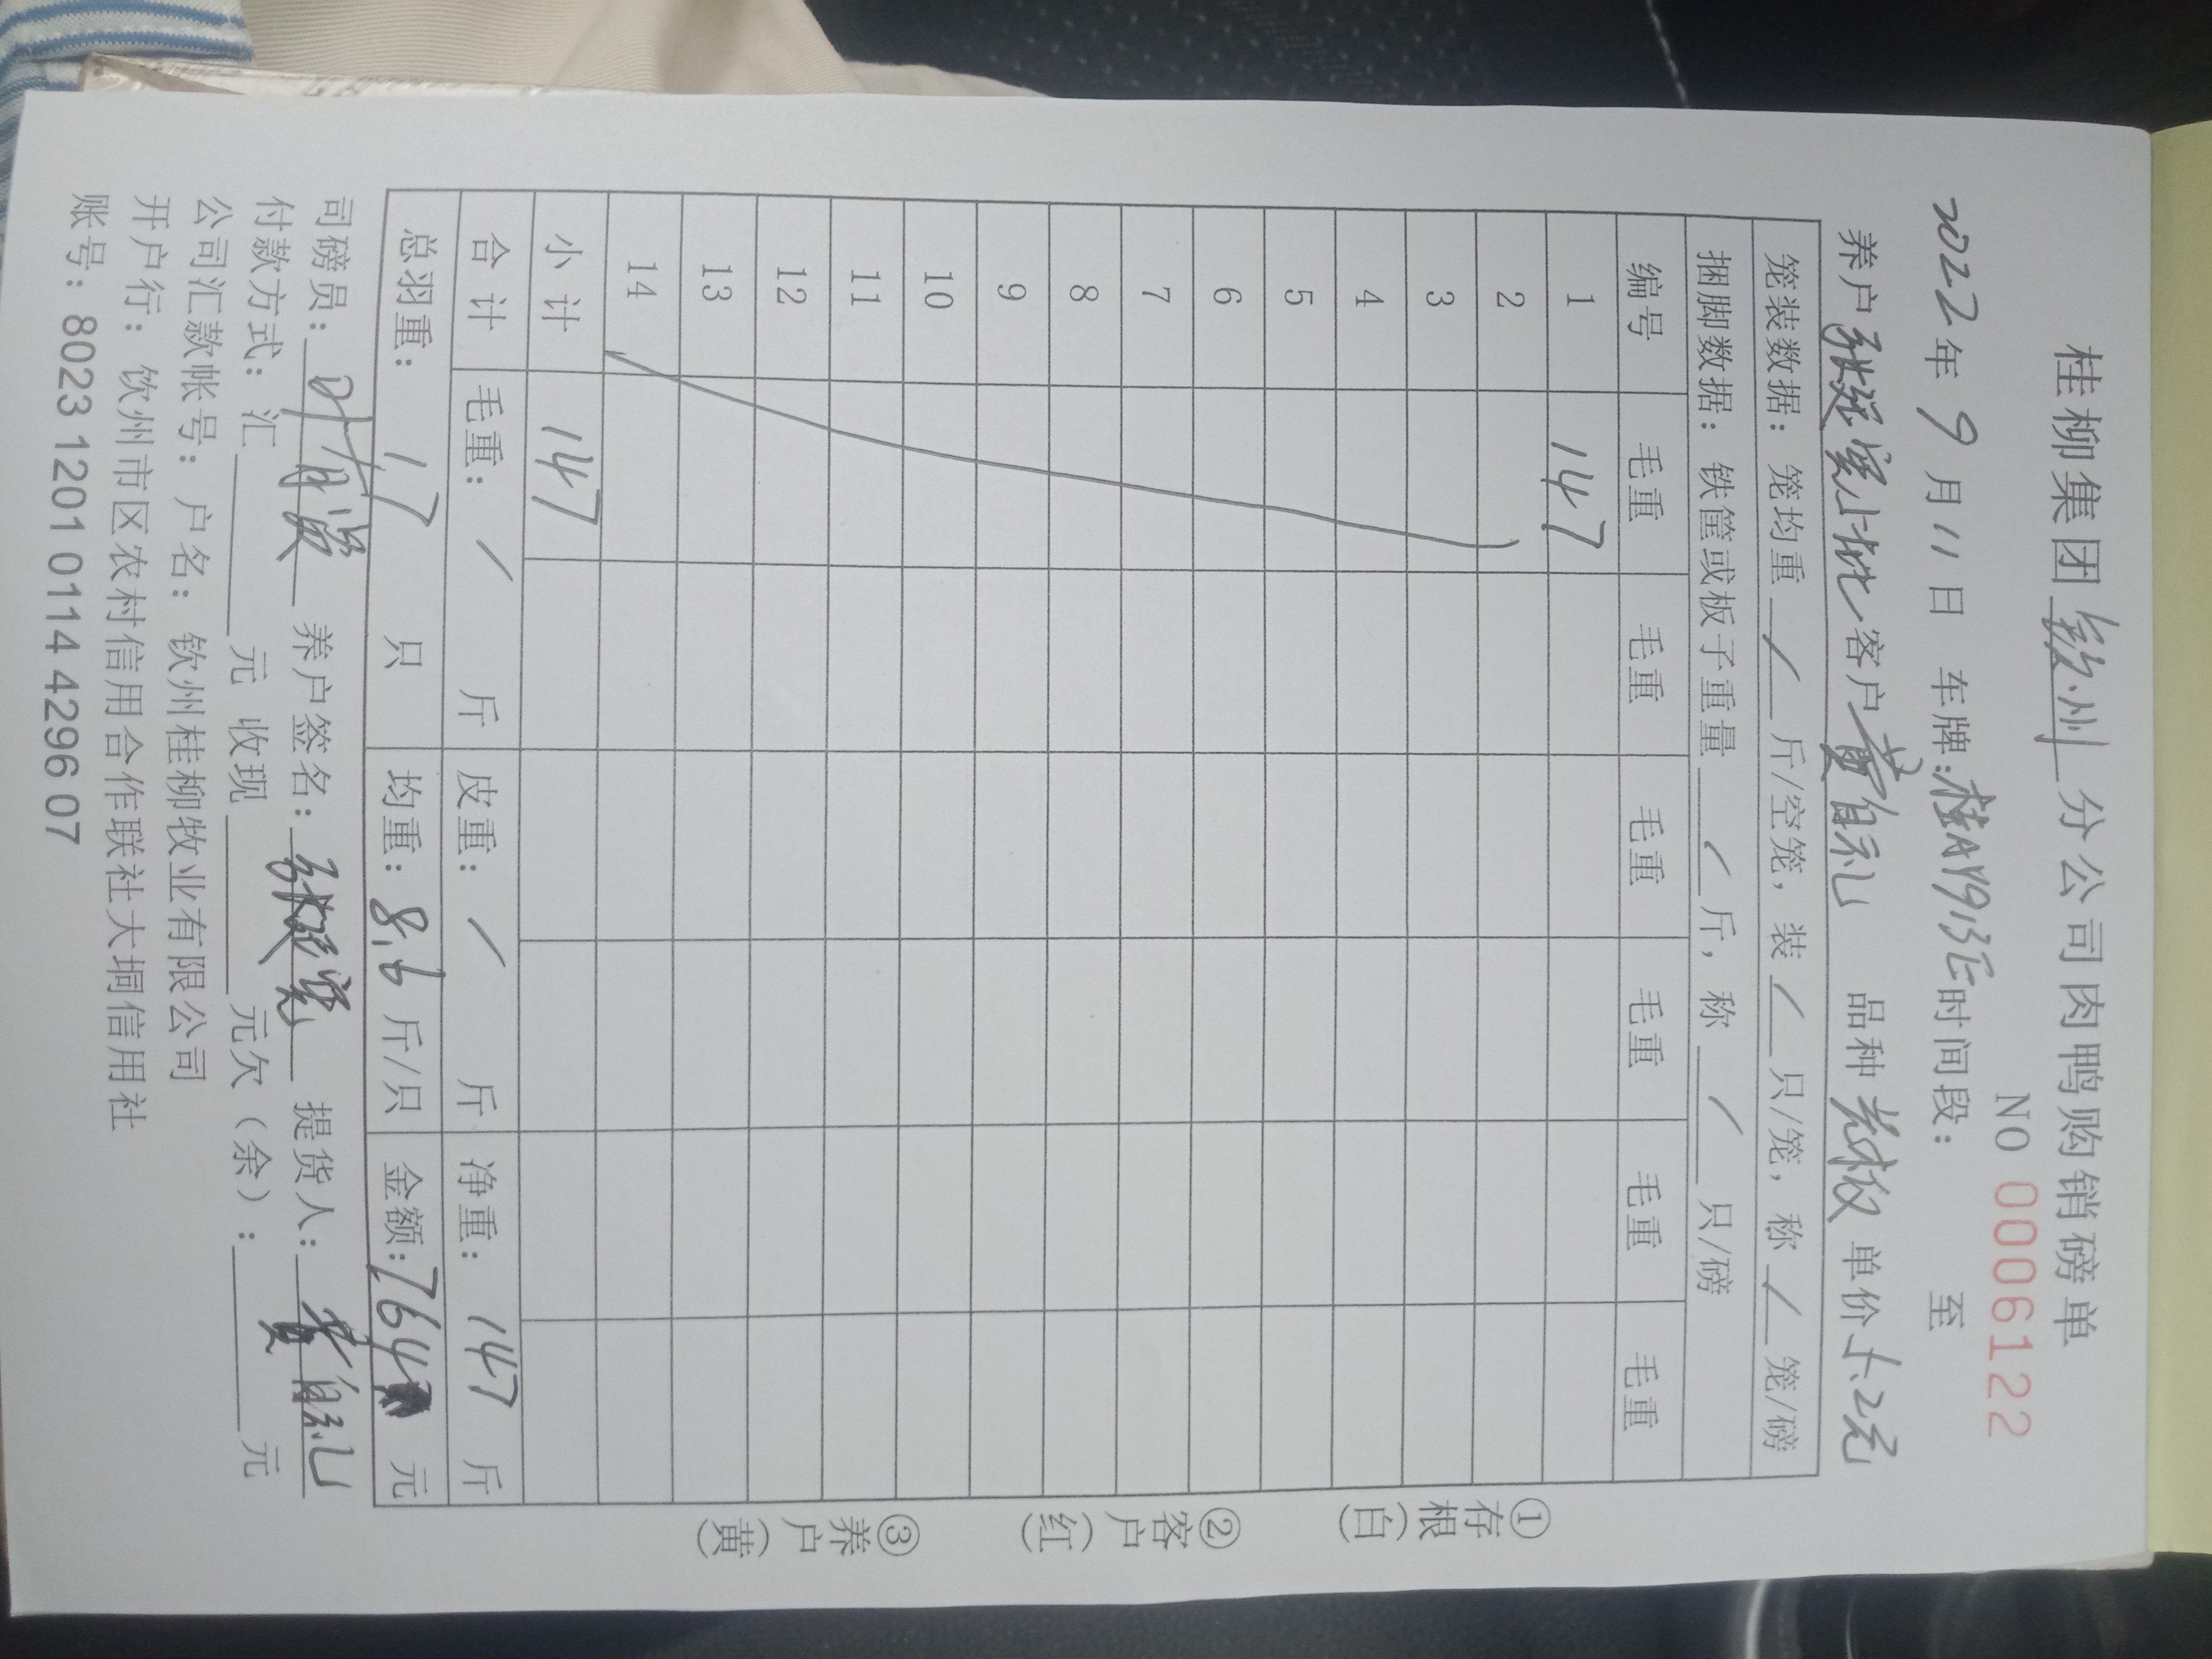 桂柳集团 钦州 分公司肉鸭购销磅单
NO 0006122
2022年 9月11日 车牌:桂AY913E时间段: 至
养户 客户黄自礼 品种 单价5.2元
笼装数据: 笼均重 / 斤/空笼, 装 / 只/笼, 称 / 笼/磅
捆脚数据: 铁筐或板子重量 / 斤, 称 / 只/磅
编号 毛重 毛重 毛重 毛重 毛重 毛重
1 147
2
3
4
5
6
7
8
9
10
11
12
13
14
小计 147
合计 毛重: / 斤 皮重: / 斤 净重: 147 斤
总羽重: 17 只 均重: 8.6 斤/只 金额:764 元
司磅员: 养户签名: 提货人: 黄自礼
付款方式: 汇 元 收现 元欠(余): 元
公司汇款帐号: 户名: 钦州桂柳牧业有限公司
开户行: 钦州市区农村信用合作联社大垌信用社
账号: 8023 1201 0114 4296 07
①存根(白)
②客户(红)
③养户(黄)